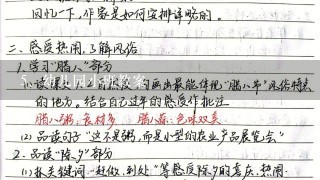 回忆一下,作家是如何安排详略的。
二、感受热闹,了解风俗
1.学习"腊八"部分
(1)读课文 画出最能体现"腊八节"风俗特点
的地方。结合自己过年的感受作批注
腊八粥:食材多 腊八蒜:色味双美
(2)品读句子"这不是粥,而是小型的农业产品展览会"
2.品读"除夕"部分
(1)抓关键词"赶做、到处"等感受除夕的喜庆、热闹
5、幼儿园小班教案